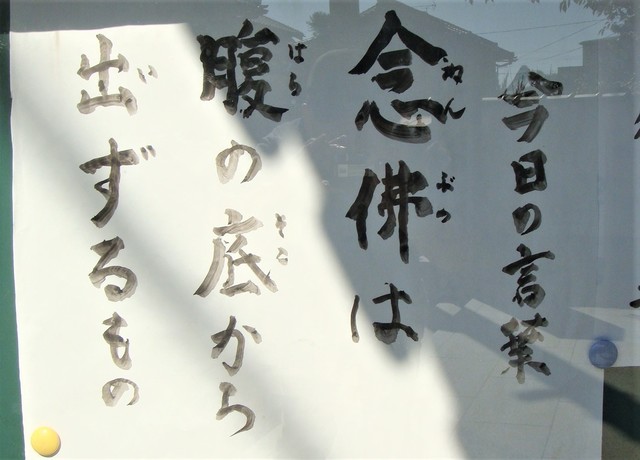 今日の言葉
念佛は
腹の底から
出ずるもの
ねん
ぶつ
はら
そこ